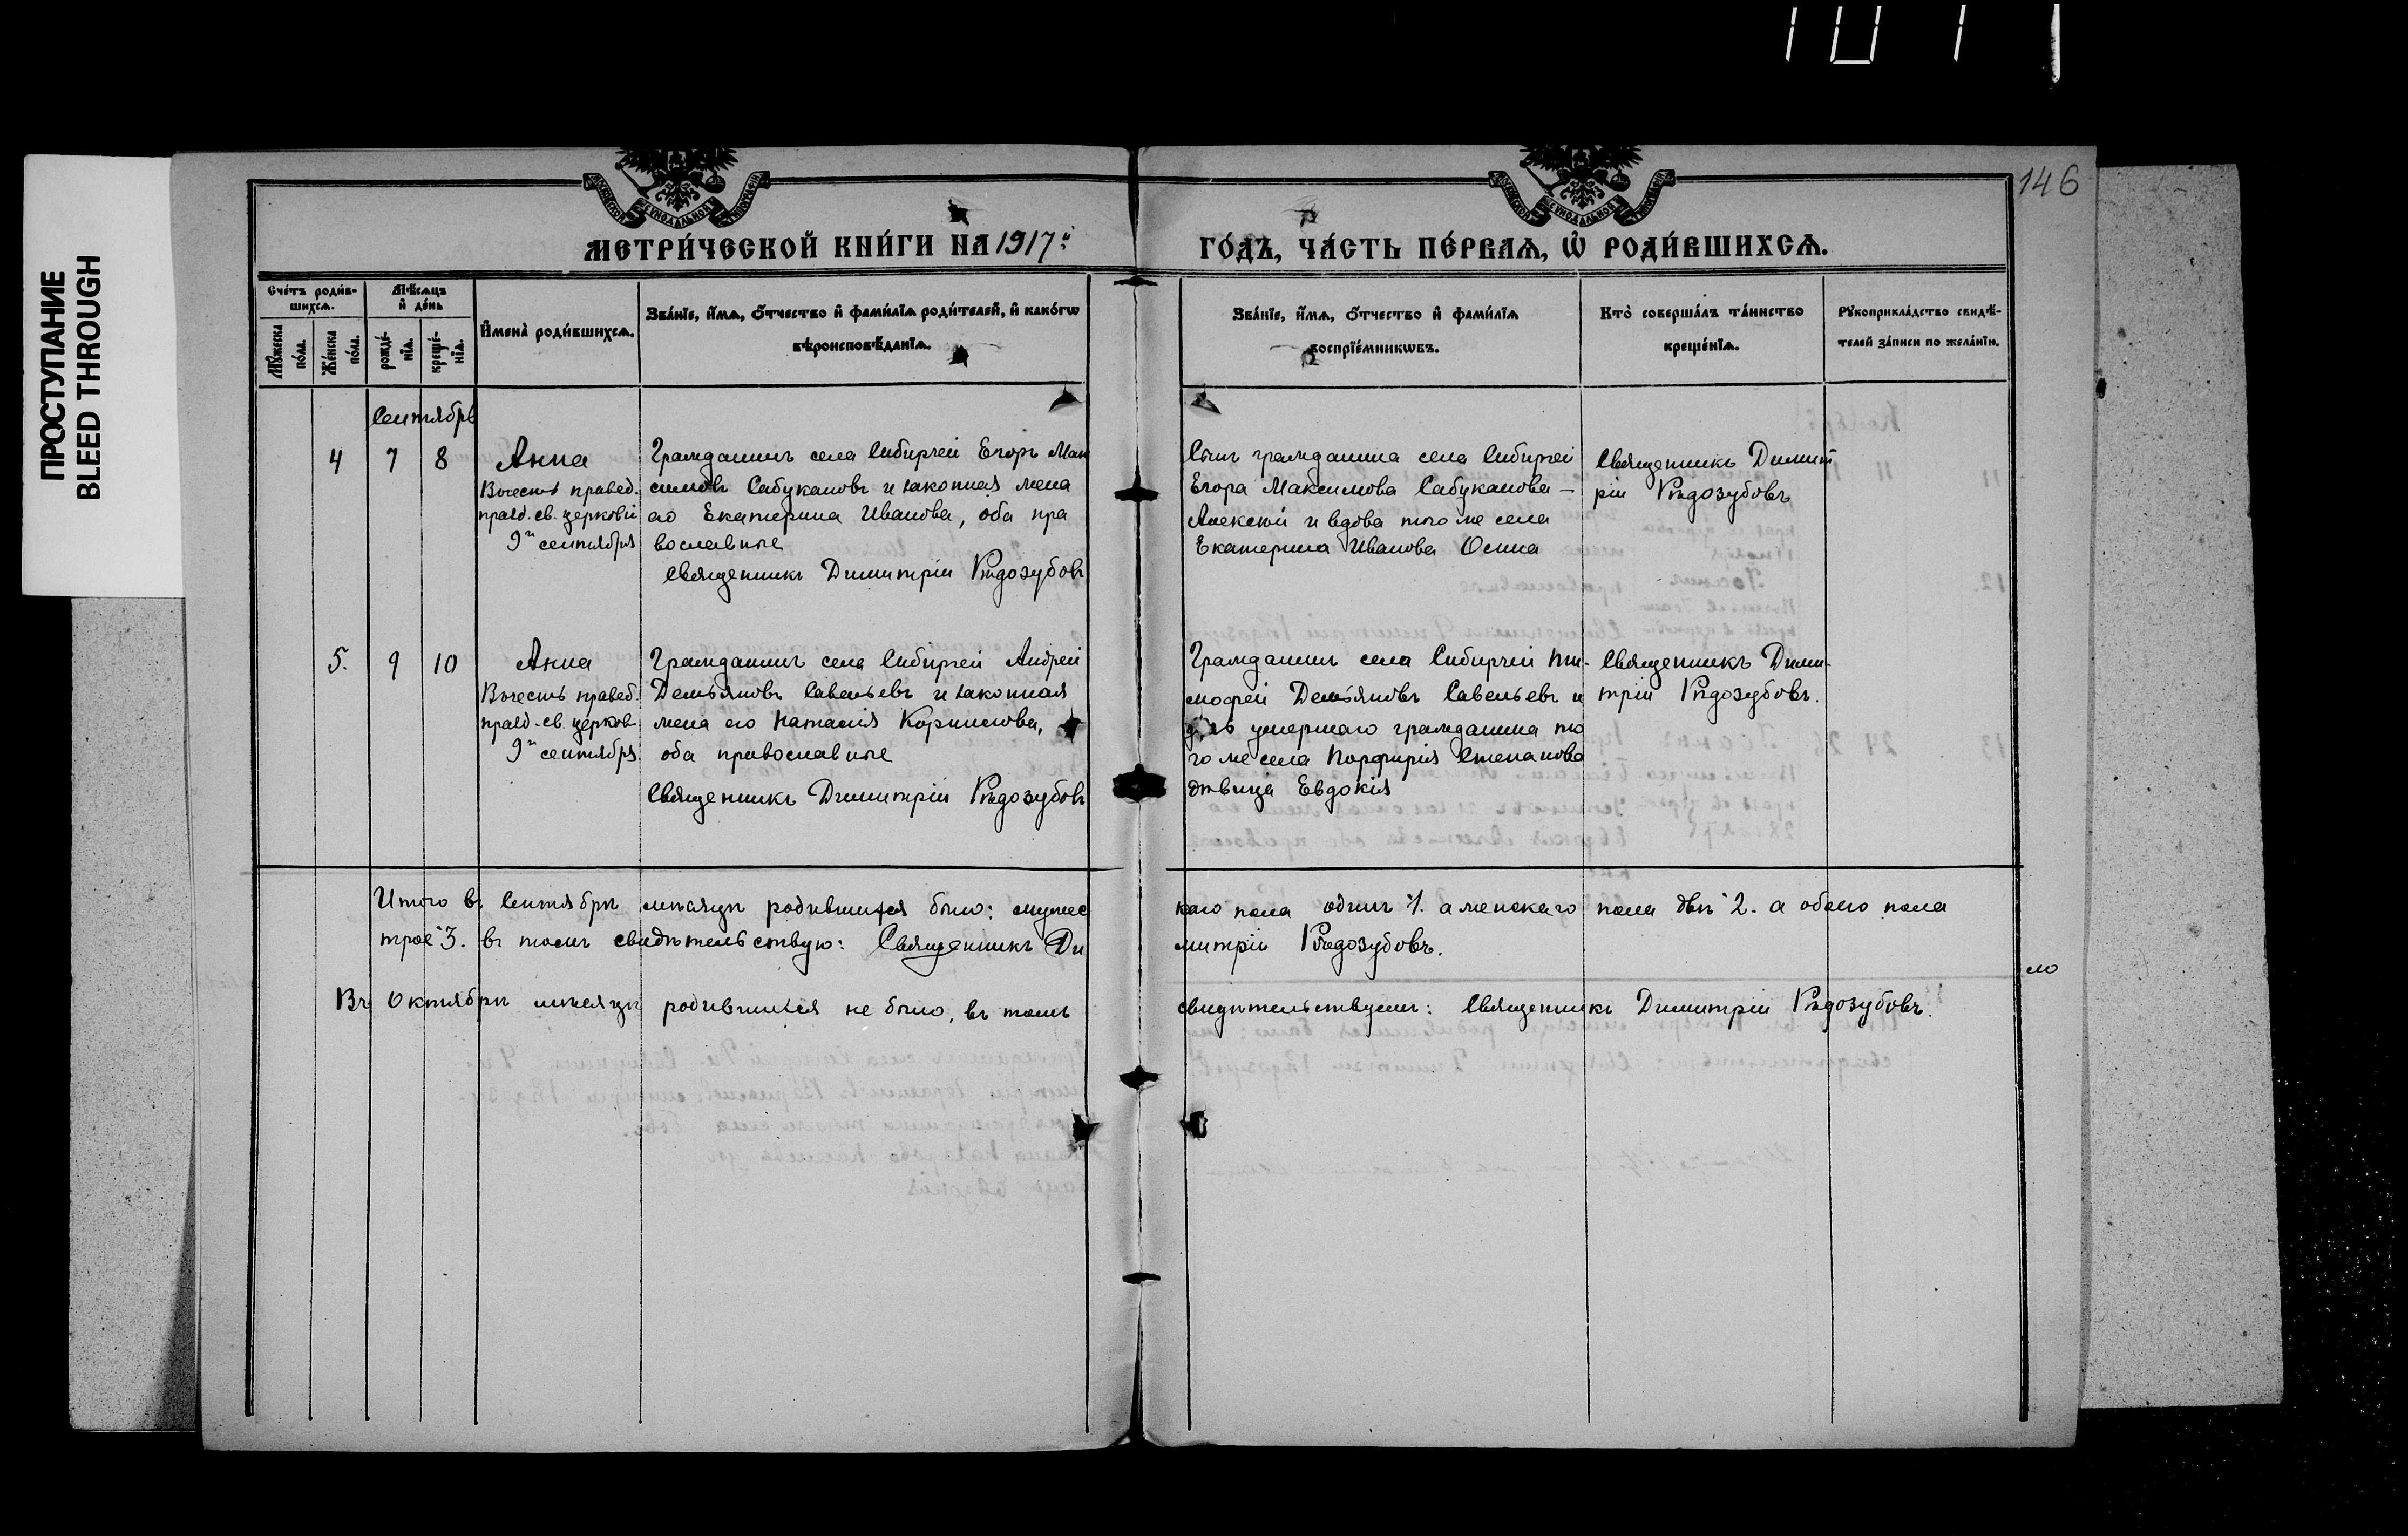 ПРОСТУПАНИЕ
BLEED THROUGH
146
МЕТРИ́ЧЕСКОЙ КНИ́ГИ НА 1917й
ГО́ДЪ, ЧА́СТЬ ПЕ́РВАѦ, Ѿ РОДИ́ВШИХСѦ.
Сче́тъ роди́в-
шихсѧ.
Мѣ́сѧцъ
и҆ де́нь
Мꙋ́жеска
по́ла.
Же́нска
по́ла.
рожде́-
нїѧ.
креще́-
нїѧ.
И҆мена̀ роди́вшихсѧ.
Зва́нїе, и҆́мѧ, ѻ҆́тчество и҆ фами́лїѧ роди́телей, и҆ како́гѡ
вѣроисповѣ́данїѧ.
Зва́нїе, и҆́мѧ, ѻ҆́тчество и҆ фами́лїѧ
воспрїе́мникѡвъ.
Кто̀ соверша́лъ та́инство
креще́нїѧ.
Рꙋкоприкла́дство свидѣ́-
телей за́писи по жела́нїю.
Сентябрь
4 7 8 Анна
Въ честь правед.
празд. св. церковію
9го сентября
Гражданинъ села Сибирчей Егоръ Мак
симовъ Сабукановъ и законная жена
его Екатерина Иванова, оба пра
вославные
Священникъ Димитрій Рѣдозубовъ
Сынъ гражданина села Сибирчей
Егора Максимова Сабуканова –
Алексѣй и вдова того же села
Екатерина Иванова Осина
Священникъ Димит
рій Рѣдозубовъ
5. 9 10 Анна
Въ честь правед.
празд. св. церков.
9го сентября
Гражданинъ села Сибирчей Андрей
Демьяновъ Савельевъ и законная
жена его Наталія Корнилова,
оба православные
Священникъ Димитрій Рѣдозубовъ
Гражданинъ села Сибирчей Ти-
мофей Демьяновъ Савельевъ и
дочь умершаго гражданина то
го же села Порфирія Степанова
дѣвица Евдокія
Священникъ Дими-
трій Рѣдозубовъ.
Итого въ Сентябрѣ мѣсяцѣ родившихся было: мужес
каго пола одинъ 1. а женскаго пола двѣ 2. а обоего пола
трое 3. въ томъ свидѣтельствую: Священникъ Ди
митрій Рѣдозубовъ.
Въ Октябрѣ мѣсяцѣ родившихся не было, въ томъ
свидѣтельствуемъ: Священникъ Димитрій Рѣдозубовъ.